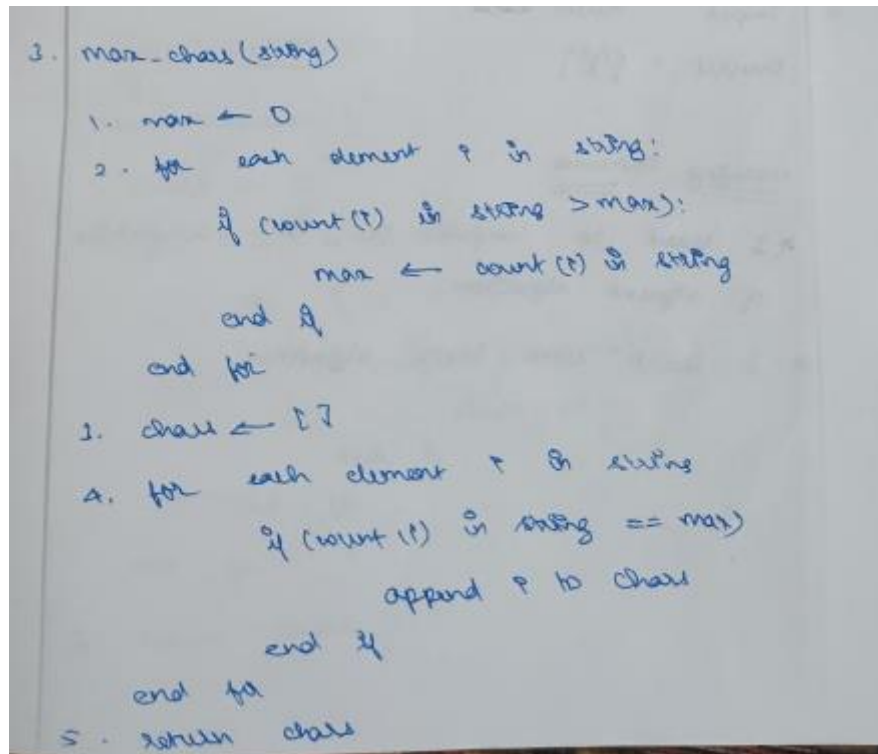 3. max_chars(string)
1. max ← 0
2. for each element i in string:
if (count(i) in string > max):
max ← count(i) in string
end if
end for
3. chars ← []
4. for each element i in string
if (count(i) in string == max)
append i to chars
end if
end for
5. return chars